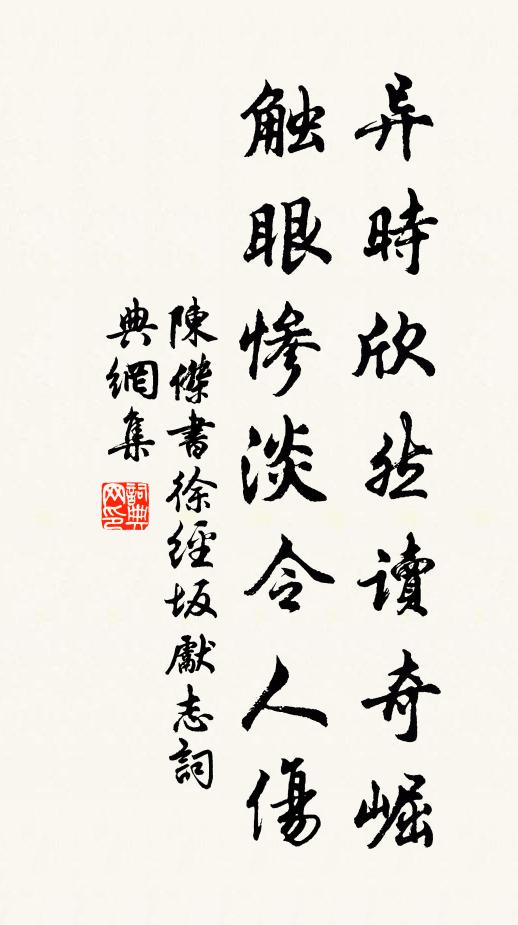 异時欣然讀奇崛
触眼惨淡令人傷
陳傑書徐經坂獻志詞
典網集
詞典网印